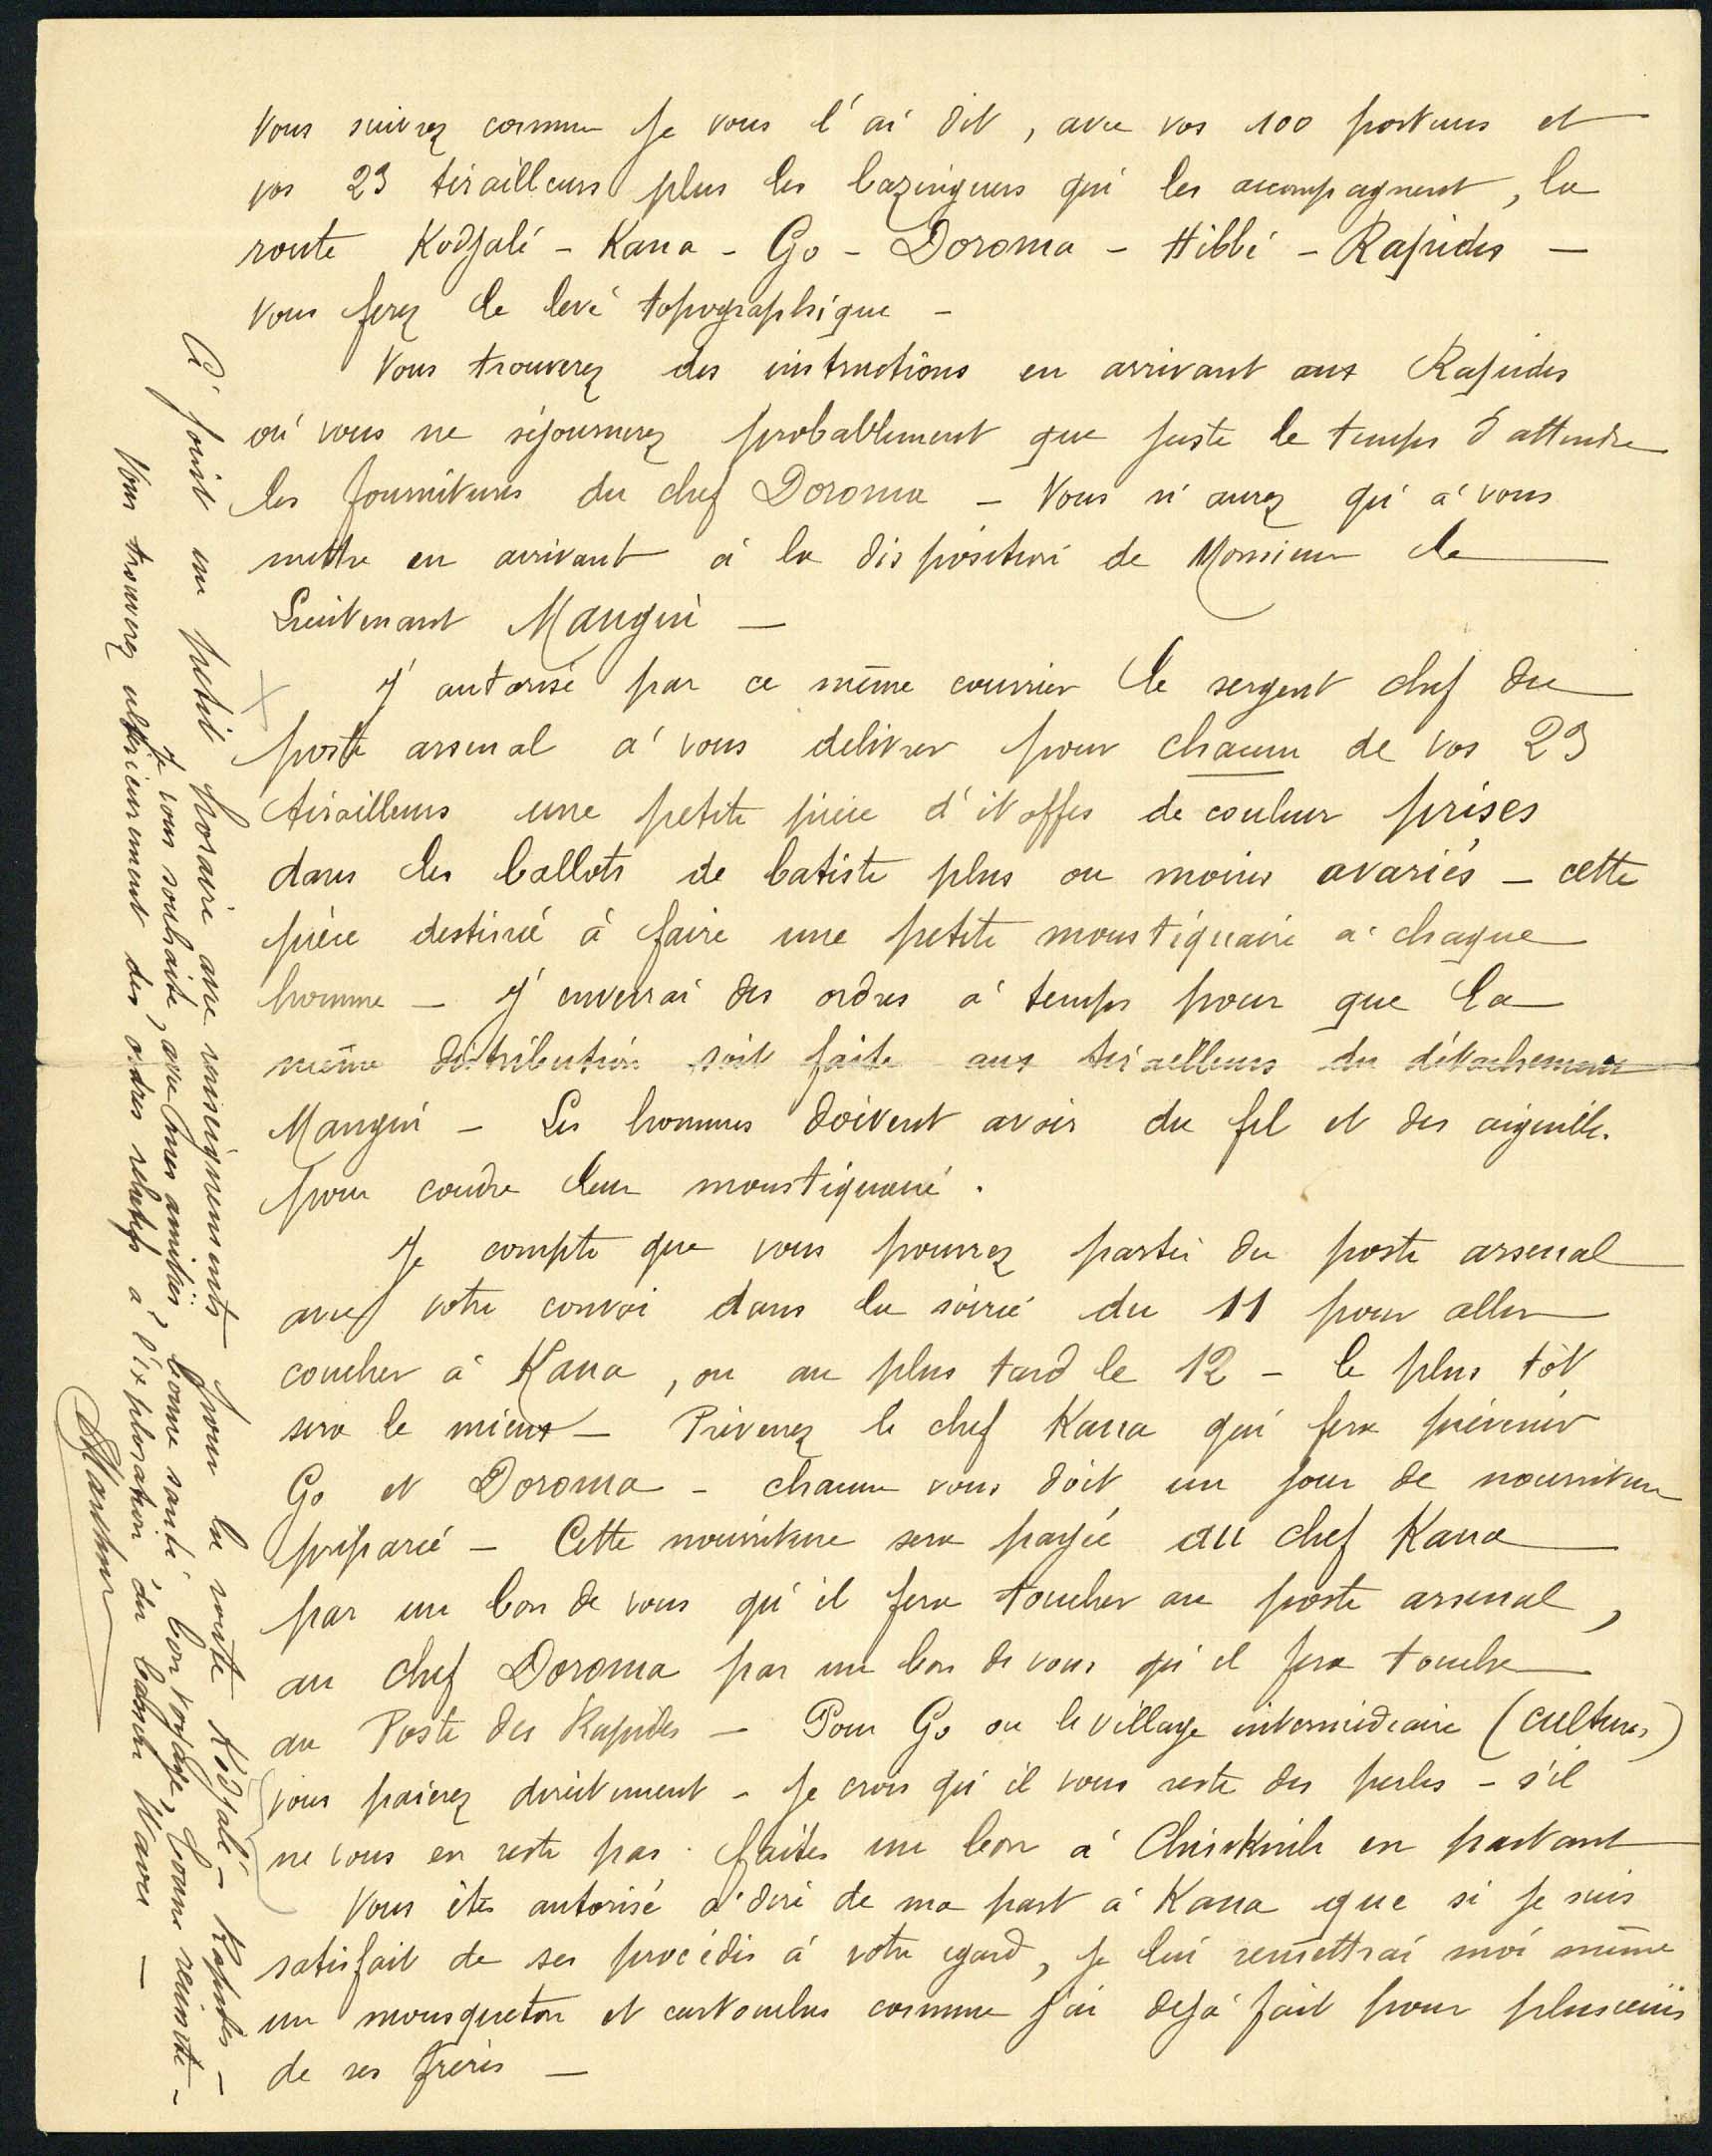 Vous suivrez comme je vous l'ai dit, avec vos 100 porteurs et
vos 23 tirailleurs plus les bazinguers qui les accompagnent, la
route Kodjalé - Kana - Go - Doroma - Hibbé - Rapides —
Vous ferez le levé topographique -
Vous trouverez des instructions en arrivant aux Rapides
où vous ne séjournerez probablement que juste le temps d'attendre
les fournitures du chef Doroma - Vous n'aurez qu'à vous
mettre en arrivant à la disposition de Monsieur le
Lieutenant Mangin —
J'autorise par ce même courrier le sergent chef du
poste arsenal à vous delivrer pour chacun de vos 23
tirailleurs une petite pièce d'étoffes de couleur prises
dans les ballots de batiste plus ou moins avariés - cette
pièce destinée à faire une petite moustiquaire à chaque
homme - J'enverrai des ordres à temps pour que la
même distribution soit faite aux tirailleurs du détachement
Mangin - Les hommes doivent avoir du fil et des aiguilles
pour coudre leur moustiquaire.
Je compte que vous pourrez partir du poste arsenal
avec votre convoi dans la soirée du 11 pour aller
coucher à Kana, ou au plus tard le 12 - le plus tôt
sera le mieux - Prévenez le chef Kana qui fera prévenir
Go et Doroma - chacun vous doit un jour de nourriture
préparée - Cette nourriture sera payée au chef Kana
par un bon de vous qu'il fera toucher au poste arsenal,
au chef Doroma par un bon de vous qu'il fera toucher
au Poste des Rapides - Pour Go ou le village intermédiaire (cultures)
vous paierez directement - Je crois qu'il vous reste des perles - s'il
ne vous en reste pas faites un bon à en partant
Vous êtes autorisé à dire de ma part à Kana que si je suis
satisfait de ses procédés à votre egard, je lui remettrai moi même
un mousqueton et cartouches comme j'ai déjà fait pour plusieurs
de ses frères —
Ci joint un petit horaire avec renseignements pour la route Kodjalé - Rapides -
Je vous souhaite, avec mes amitiés, bonne santé, bon voyage, bonne réussite -
Vous trouverez ultérieurement des ordres relatifs à l'exploration du bassin Waou —
Marchand